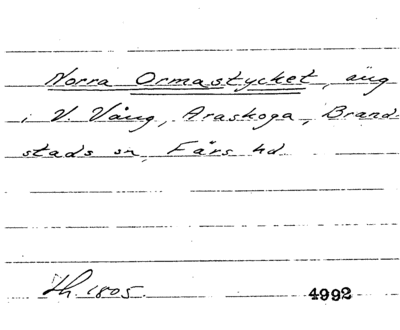 Norra Ormastycket, äng
i V. Vång, Araskoga, Brand-
stads sn, Färs hd
Lh 1805.
4992